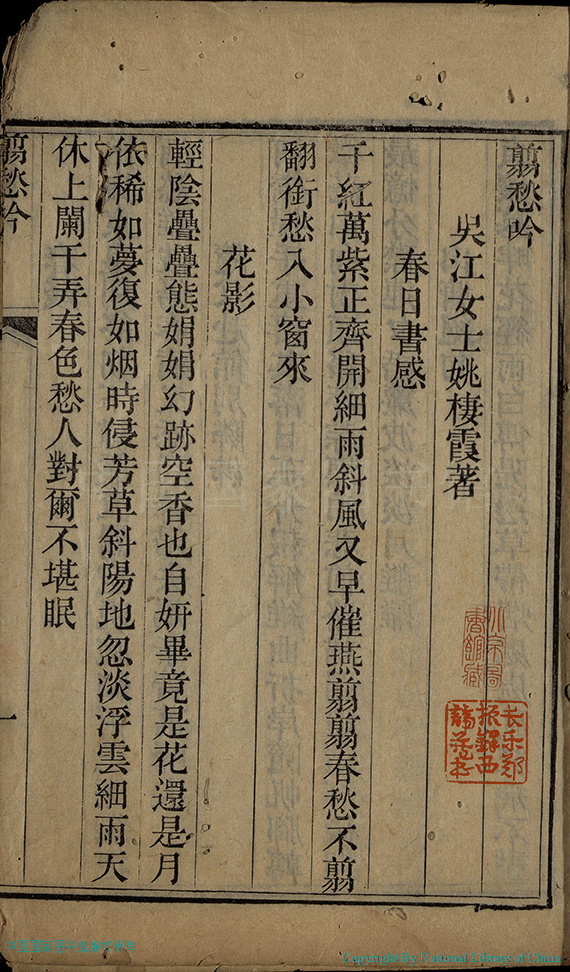 翦愁吟
吳江女士姚棲霞著
春日書感
千紅萬紫正齊開細雨斜風又早催燕翦翦春愁不翦
翻銜愁入小窗來
花影
輕陰疊疊態娟娟幻跡空香也自妍畢竟是花還是月
依稀如夢復如烟時侵芳草斜陽地忽淡浮雲細雨天
休上闌干弄春色愁人對爾不堪眠
翦愁吟
一
長樂鄭
振鐸西
諦藏書
Copyright By National Library of China